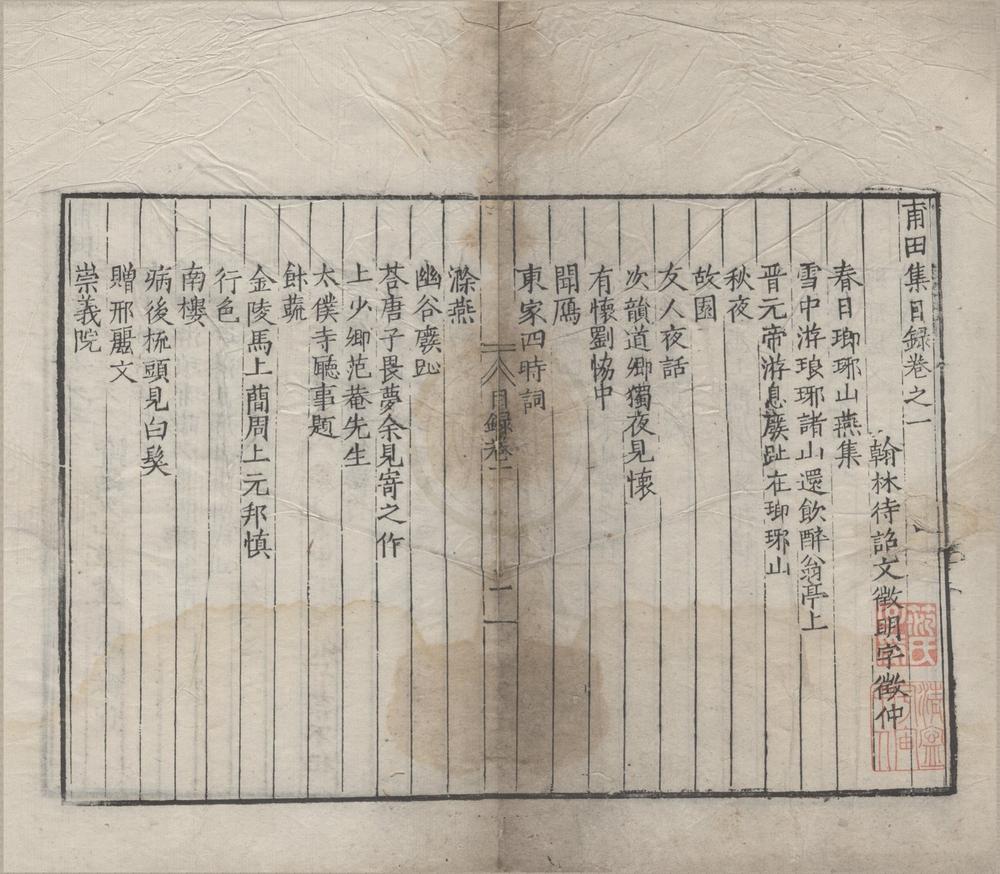 甫田集目録卷之一
翰林待詔文徵明字徵仲
春日瑯琊山燕集
雪中游琅琊諸山還飲醉翁亭上
晋元帝游息廢趾在瑯琊山
秋夜
故園
友人夜話
次韻道卿獨夜見懷
有懷劉恊中
聞鴈
東家四時詞
目録卷一
一
滁燕
幽谷廢趾
荅唐子畏夢余見寄之作
上少卿范菴先生
太僕寺聽事題
餘蔬
金陵馬上蕳周上元邦慎
行色
南樓
病後梳頭見白髮
贈邢麗文
崇義院